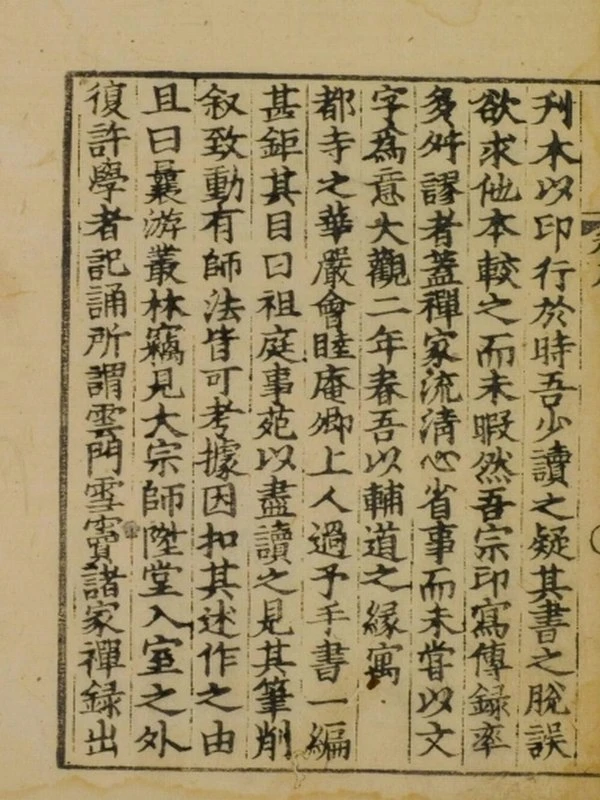 刋本以印行於時吾少讀之疑其書之脫誤
欲求他本較之而未暇然吾宗印寫傳録率
多舛謬者葢禪家流清心省事而未嘗以文
字為意大觀二年春吾以輔道之緣寓
都寺之華嚴會睦庵卿上人過予手書一編
甚鉅其目曰祖庭事苑以盡讀之見其筆削
叙致動有師法皆可考據因扣其述作之由
且曰曩游叢林竊見大宗師陞堂入室之外
復許學者記誦所謂雲門雪竇諸家禪録出